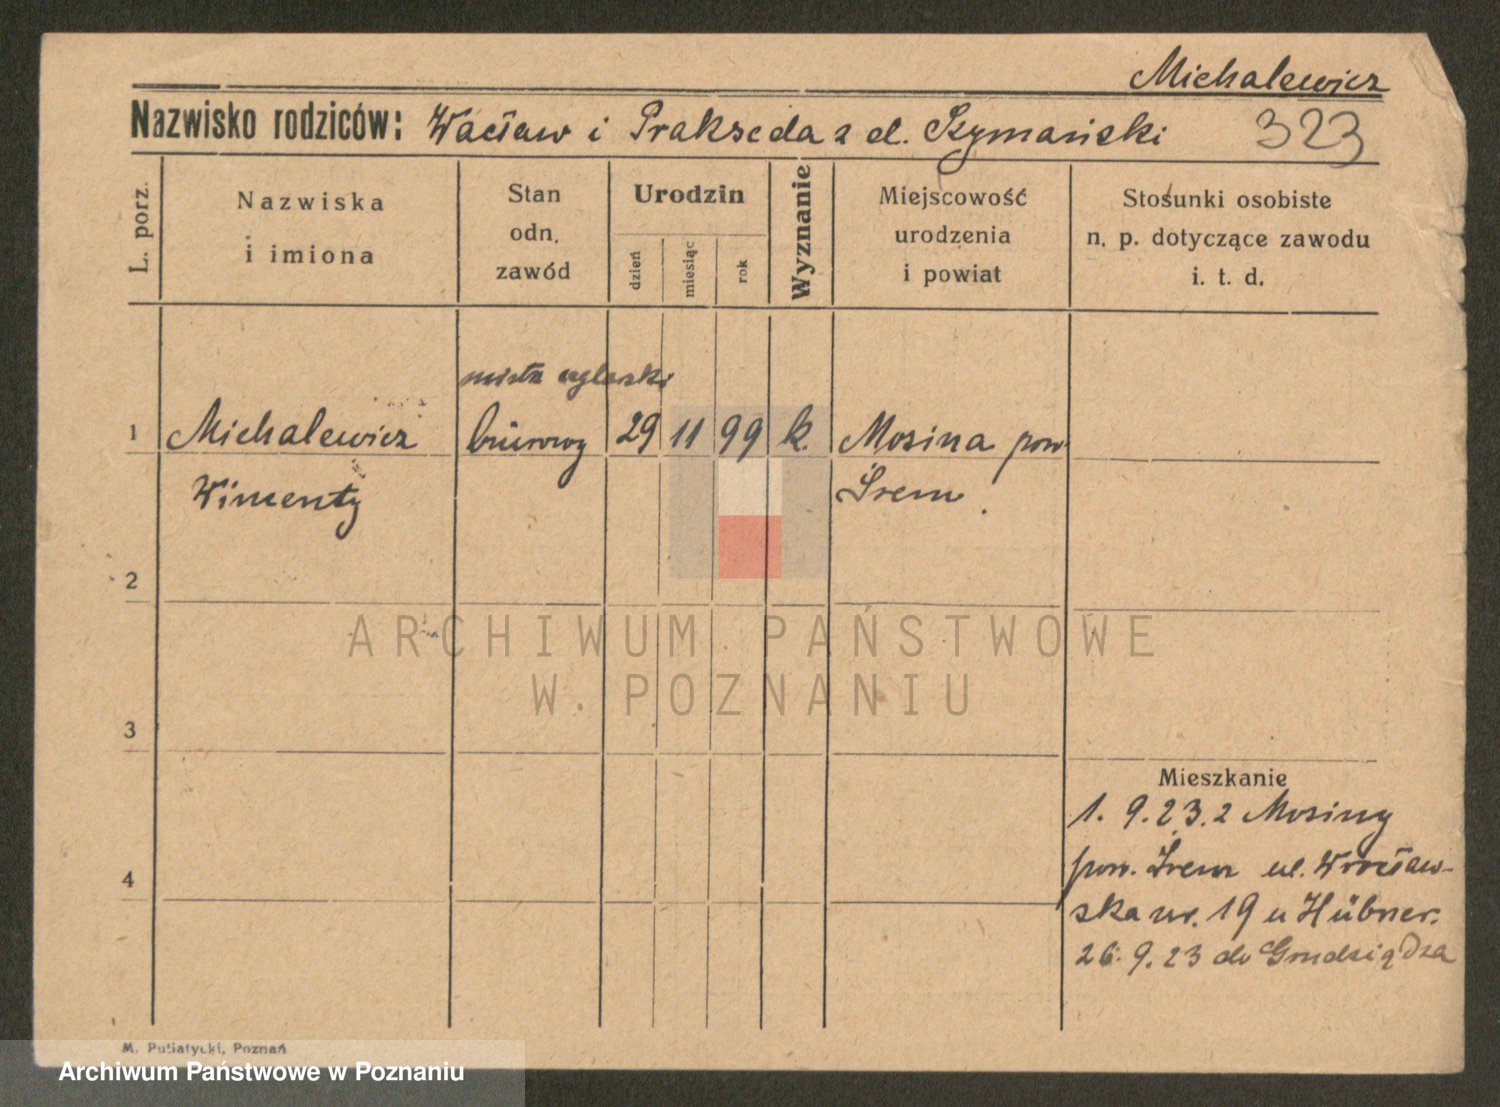 Michalewicz
Nazwisko rodziców: Wacław i Prakseda z d. Szymański 323
L. porz.
Nazwiska
i imiona
Stan
odn.
zawód
Urodzin
dzień
miesiąc
rok
Wyznanie
Miejscowość
urodzenia
i powiat
Stosunki osobiste
n. p. dotyczące zawodu
i. t. d.
1 Michalewicz 29 11 99 k. Mosina pow
Wincenty Śrem.
2
ARCHIWUM PAŃSTWOWE
W POZNANIU
3
Mieszkanie
1. 9. 23. z Mosiny
pow. Śrem ul. Wrocław-
4
ska nr. 19 u Hübner.
26. 9. 23 do Grudziądza
M. Putiatycki, Poznań
Archiwum Państwowe w Poznaniu